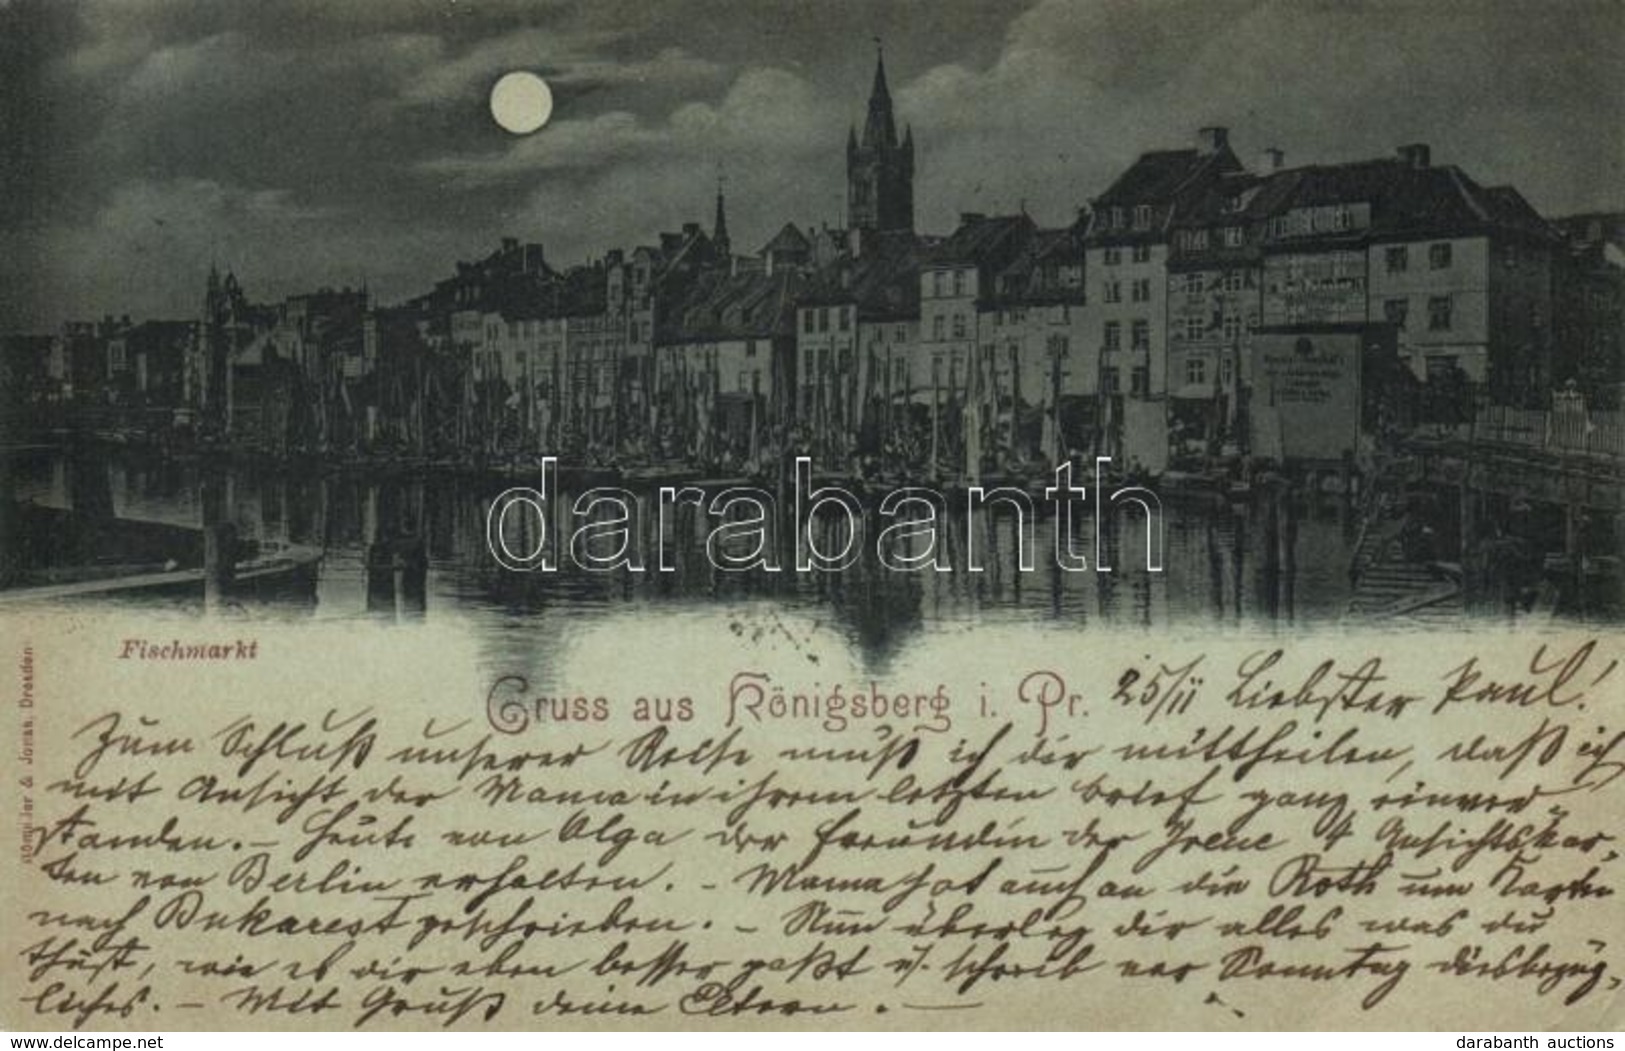 darabanth
Fischmarkt
Gruss aus Königsberg i. Pr.
25/11 Liebster Paul!
Zum Schluß unserer Reise muß ich dir mittheilen, daß ich
mit Ansicht der Mama in ihrem letzten brief ganz einver-
standen. – Heute von Olga der freundin der Irene 4 Ansichtskar-
ten von Berlin erhalten. – Mama hat auch an die Roth um Karten
nach Bukarest geschrieben. – Nun überleg dir alles was du
thust, wie es dir eben besser paßt u/. schreib vor Sonntag diesbezüg-
liches. – Mit Gruß deine Eltern. –
& Jonas, Dresden
delcampe.net
darabanth auctions